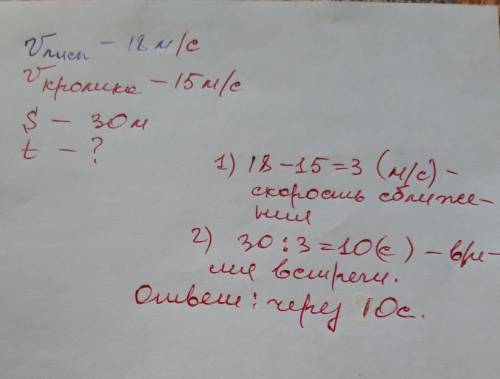 Vлисы – 18 м/с
Vкролика – 15 м/с
S – 30 м
t – ?
1) 18 – 15 = 3 (м/с) –
скорость сближе-
ния
2) 30 : 3 = 10 (с) – вре-
мя встречи.
Ответ: через 10с.